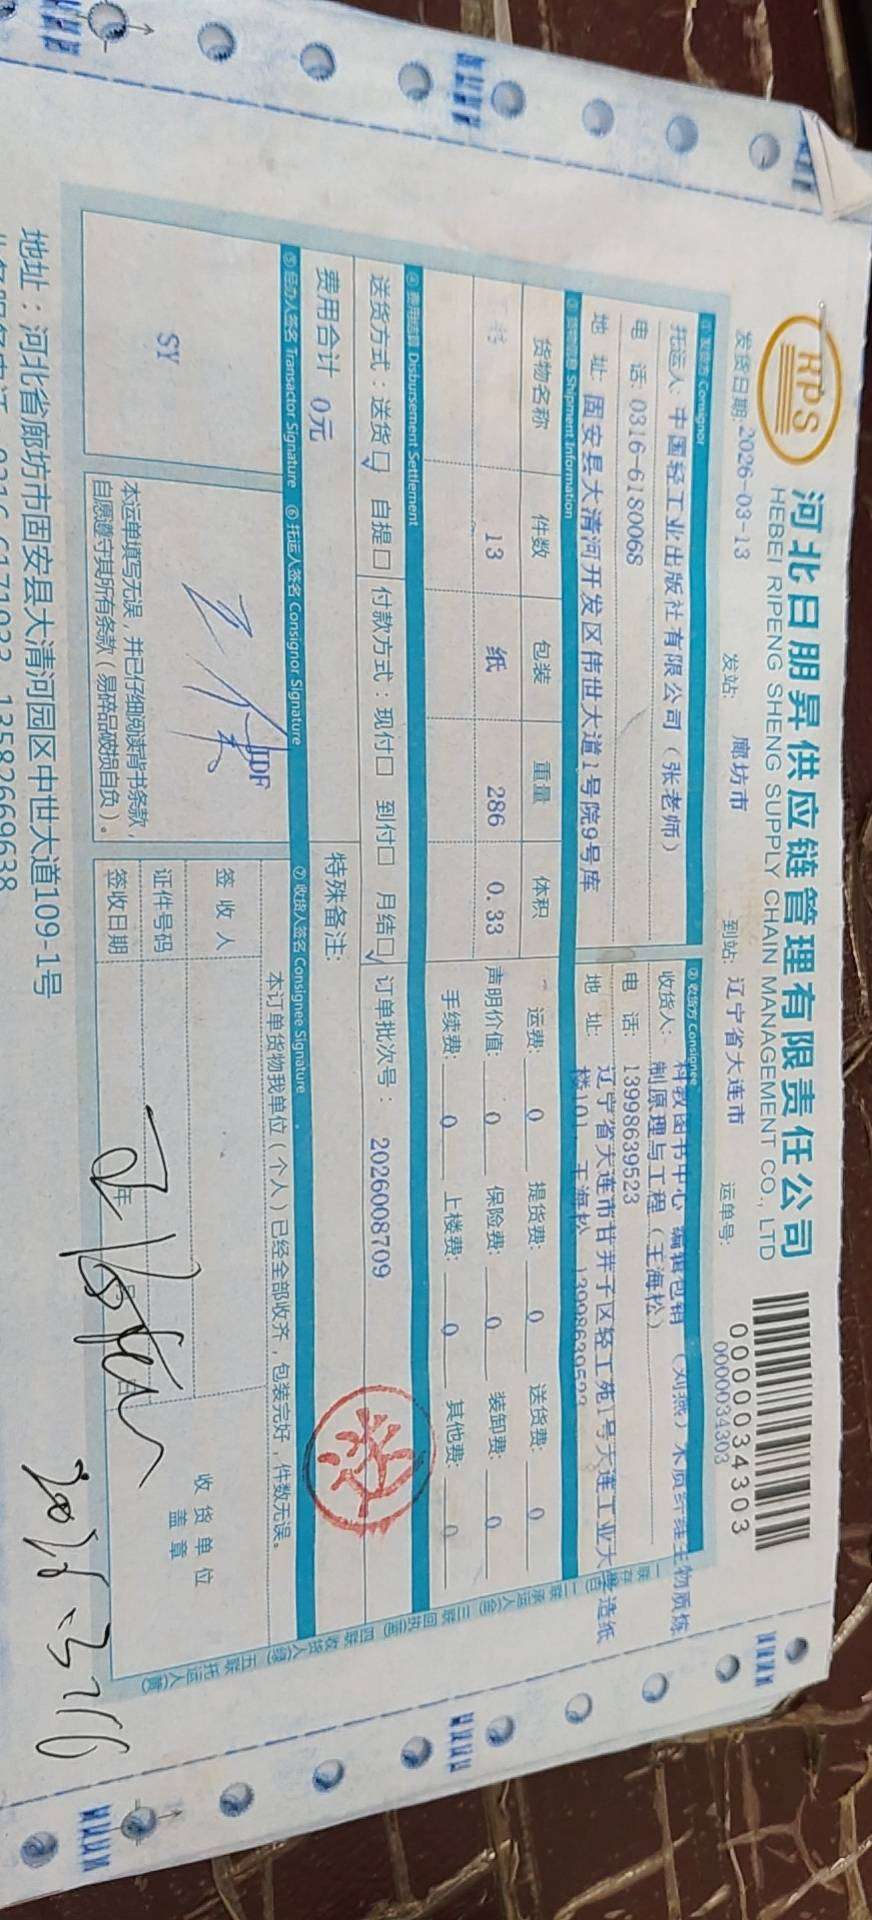 RPS
河北日朋昇供应链管理有限责任公司
HEBEI RIPENG SHENG SUPPLY CHAIN MANAGEMENT CO., LTD
0000034303
0000034303
发货日期: 2026-03-13 发站: 廊坊市 到站: 辽宁省大连市 运单号:
① 发货方 Consignor
托运人: 中国轻工业出版社有限公司（张老师）
电 话: 0316-6180068
地 址: 固安县大清河开发区伟世大道1号院9号库
② 收货方 Consignee
收货人: 科教图书中心 编辑包销 （刘燕）木质纤维生物质炼
制原理与工程（王海松）
电 话: 13998639523
地 址: 辽宁省大连市甘井子区轻工苑1号大连工业大学造纸
楼101, 王海松 13998639523
③ 货物信息 Shipment Information
货物名称 件数 包装 重量 体积
13 纸 286 0.33
运费: 0 提货费: 0 送货费: 0
声明价值: 0 保险费: 0 装卸费: 0
手续费: 0 上楼费: 0 其他费: 0
④ 费用结算 Disbursement Settlement
送货方式: 送货☑ 自提□ 付款方式: 现付□ 到付□ 月结☑ 订单批次号: 2026008709
费用合计 0元
特殊备注:
⑤ 经办人签名 Transactor Signature ⑥ 托运人签名 Consignor Signature ⑦ 收货人签名 Consignee Signature
SY
JDF
本运单填写无误，并已仔细阅读背书条款，
自愿遵守其所有条款（易碎品破损自负）。
本订单货物我单位（个人）已经全部收齐，包装完好，件数无误。
签 收 人
证件号码
签收日期 年 月 日
收 货 单 位
盖 章
王海松
地址：河北省廊坊市固安县大清河园区中世大道109-1号